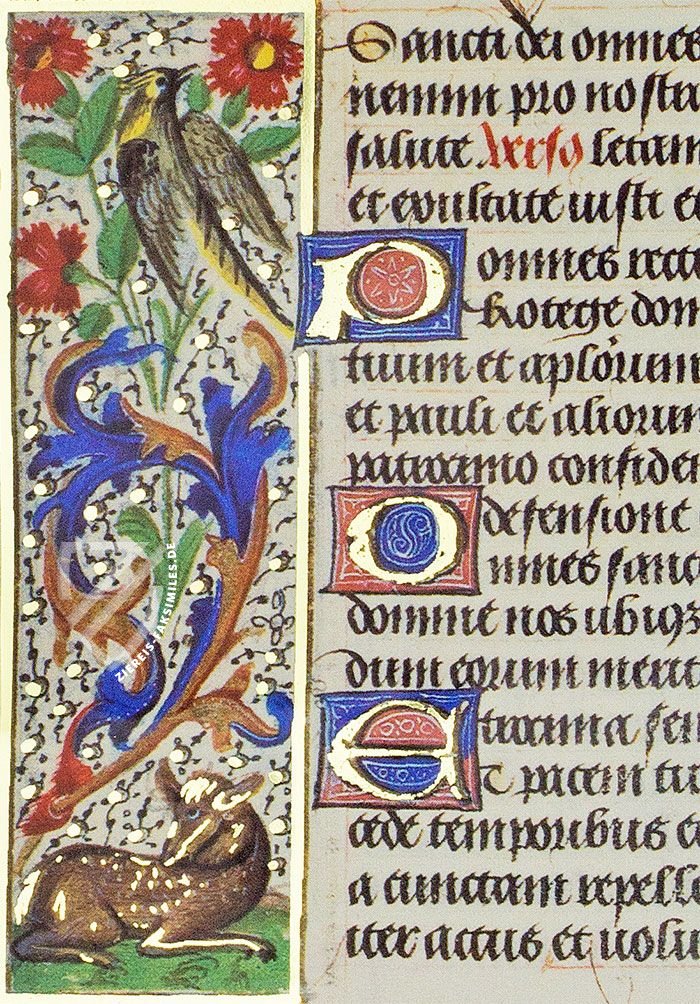 Sancti dei omnes
nemini pro nostra
salute Verso letam
et exultate iusti et
Domnes
Protege dom
tuum et aplorum
et pauli et aliorum
patrocinio confide
defensione
Omnes sanc
domine nos ubiq3
dum eorum merit
proxima sen
Et pacem tu
cede temporibus
a cunctam repelle
iter actus et uolu
ZIEREIS FAKSIMILES.DE